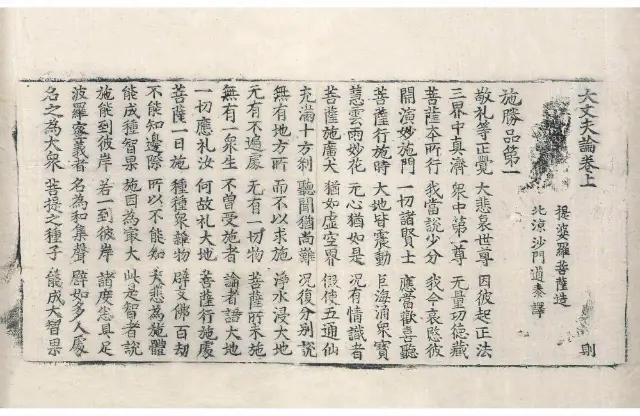 大丈夫論卷上 則
提婆羅菩薩造
北涼沙門道泰譯
施勝品第一
敬礼等正覺 大悲哀世尊 因彼起正法
三界中真濟 衆中第一尊 无量功徳藏
菩薩本所行 我當說少分 我今哀愍彼
開演妙施門 一切諸賢士 應當歡喜聽
菩薩行施時 大地皆震動 巨海涌衆寶
慧雲雨妙花 无心猶如是 況有情識者
菩薩施廣大 猶如虛空界 假使五通仙
充滿十方刹 聽聞猶尚難 況復分別說
無有地方所 而不以求施 淨水浸大地
无有不遍處 无有一切物 菩薩所未施
無有一衆生 不曾受施者 論者語大地
一切應礼汝 何故礼大地 菩薩行施處
菩薩一日施 種種衆雜物 辟支佛百劫
不能知邊際 所以不能知 大悲為施體
能成種智果 施因為最大 此是智者說
施能到彼岸 若一到彼岸 諸度悉具足
波羅蜜義者 名為和集聲 辟如多人處
名之為大衆 菩提之種子 能成大智果